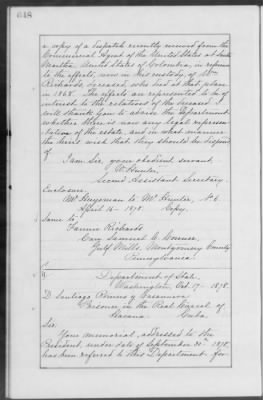 648
a copy of a dispatch recently received from the
Commercial Agent of the United States at Santa
Martha, United States of Colombia, in reference
to the effects, now in his custody, of Wm
Richards, deceased, who died at that place
in 1868. The effects are represented to be of
interest to the relations of the deceased. I
will thank you to advise the Department
whether there is now any legal represen-
tation of the estate, and in what manner
the heirs wish that they should be disposed
of.
I am Sir, your obedient servant,
W. Hunter,
Second Assistant Secretary
Enclosure.
Mr. to Mr. Hunter, No 6
April 15 - 1878. Copy.
Same to:
Fannie Richards
Care Samuel C.
Gulf Mills, Montgomery County
Pennsylvania.
Department of State.
Washington, Oct. 17 - 1878.
D. Santiago Romero y Casanova
Prisoner in the Real Carcel of
Havana. Cuba.
Sir:
Your memorial, addressed to the
President, under date of September 30th 1878,
has been referred to this Department for